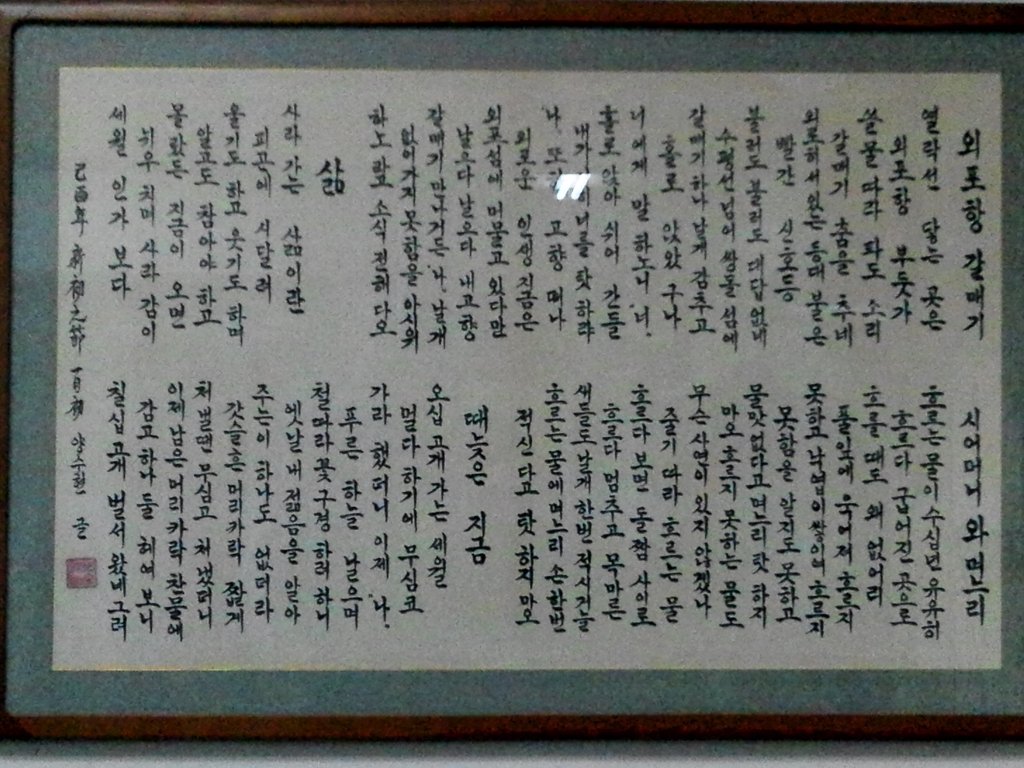 외포항 갈매기
열락선 닿는 곳은
외포항 부둣가
쌀물 따라 파도 소리
갈매기 춤을 추네
외로히 서 있는 등대 불은
빨간 신호등
불러도 불러도 대답 없네
수평선 넘의 쌍돌 섬에
갈매기 하나 날개 감추고
홀로 앉았 구나
너에게 말 하노니 너.
홀로 앉아 쉬어 간들
내가 너를 탓 하랴
나 고향 떠나
외로운 인생 지금은
외포섬에 머물고 있다만
날으다 날으다 내 고향
갈매기 만나거든 나. 날개
없어 가지 못함을 아쉬워
하노라고 소식 전해 다오
삶
사라 가는 삶이란
피곤의 시달려
울기도 하고 웃기도 하며
알고도 참아야 하고
몰란든 지금이 오면
뉘우 치며 사라 감이
세월 인가 보다
시어머니 와 며느리
흐르는 물이 수심면 유유히
흐르다 굽어진 곳으로
흐를 때도 왜 없어리
풀잎에 우거져 흐르지
못하고 낙엽이 쌓이 흐르지
못함을 알지도 못하고
물맛 없다고 며느리 탓 하지
마오 흐르지 못하는 물도
무슨 사연이 있지 않겠나
줄기 따라 흐르는 물
흐르다 보면 돌짬 사이로
흐르다 멈추고 목마른
새들도 날개 한번 적시긴들
흐르는 물의 며느리 손 한번
적신 다고 탓 하지 마오
때늦은 지금
오십 고개 가는 세월
멀다 하기에 무심코
가라 했더니 이제 나.
푸른 하늘 날으며
철따라 꽃구경 하려 하니
옛날 내 젊음을 알아
주는이 하나도 없더라
갓 슬흔 머리카락 짧게
처 낼땐 무심코 처 냈더니
이제 남은 머리카락 한둘에
감고 하나 둘 헤여 보니
칠십 고개 벌서 왔네 그려
己酉年 新初之節 一月初 양수철 글